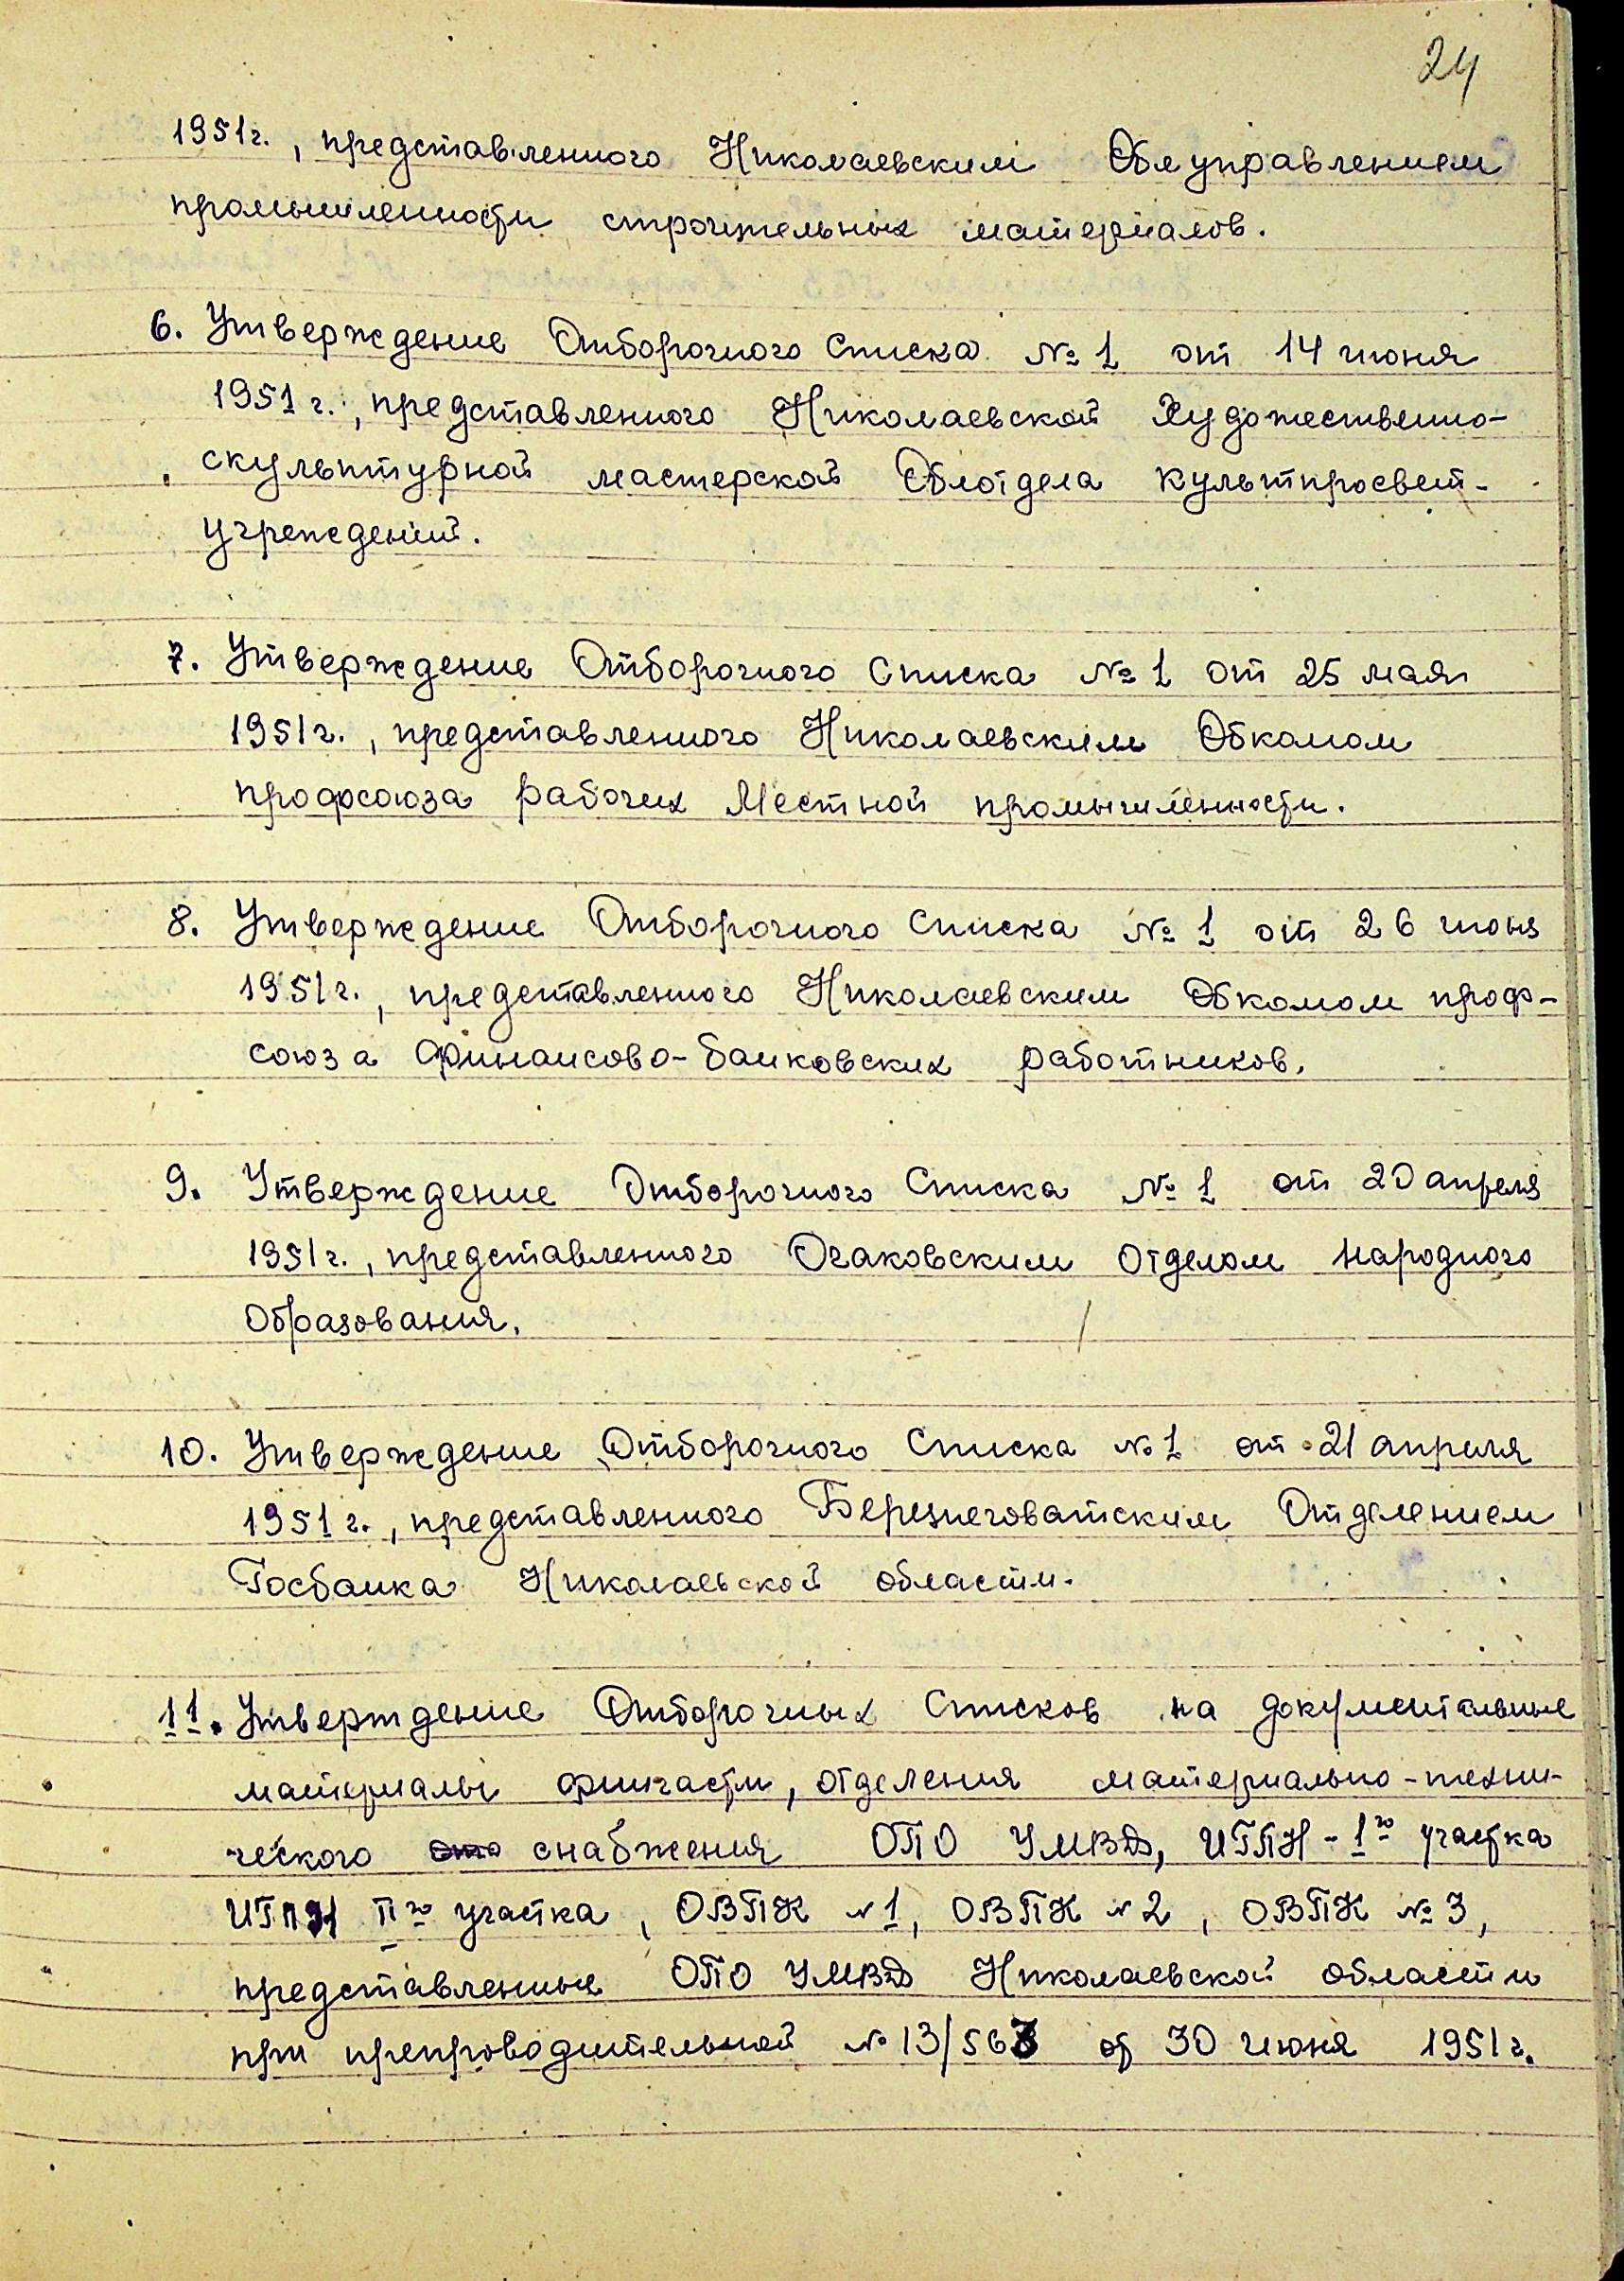 24
1951 г., представленного Николаевским Облуправлением
промышленности строительных материалов.
6. Утверждение Отборочного Списка № 1 от 14 июня
1951 г., представленного Николаевской Художественно-
скульптурной мастерской Облотдела Культпросвет-
учреждений.
7. Утверждение Отборочного Списка № 1 от 25 мая
1951 г., представленного Николаевским Обкомом
профсоюза рабочих Местной промышленности.
8. Утверждение Отборочного Списка № 1 от 26 июня
1951 г., представленного Николаевским Обкомом проф-
союза Финансово-банковских работников.
9. Утверждение Отборочного Списка № 1 от 20 апреля
1951 г., представленного Очаковским Отделом Народного
Образования.
10. Утверждение Отборочного Списка № 1 от 21 апреля
1951 г., представленного Березнеговатским Отделением
Госбанка Николаевской области.
11. Утверждение Отборочных Списков на документальные
материалы финчасти, отделения материально-техни-
ческого снабжения ОПО УМВД, ИГПН - 1го участка
ИГПН IIго участка, ОВПК № 1, ОВПК № 2, ОВПК № 3,
представленные ОПО УМВД Николаевской области
при препроводительной № 13/567 от 30 июня 1951 г.